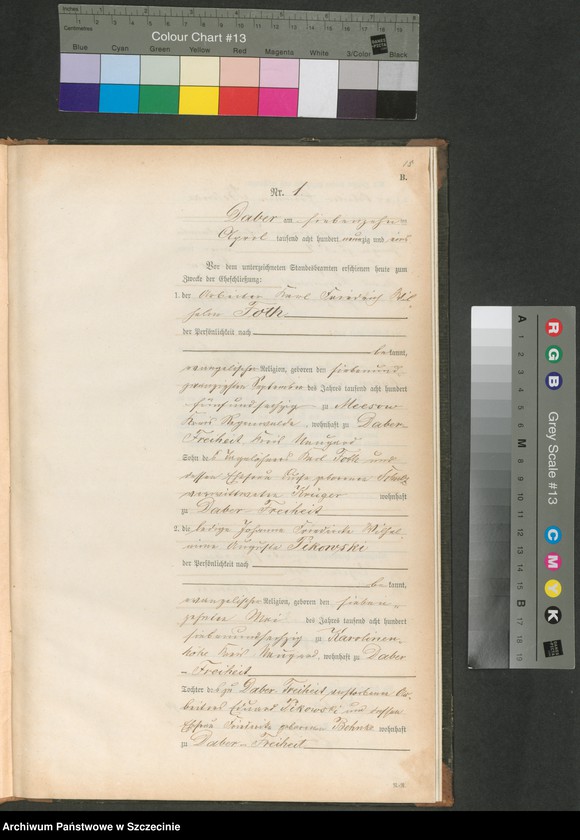 Inches
Centimetres
Colour Chart #13
Blue Cyan Green Yellow Red Magenta White 3/Color Black
15
B.
Nr. 1.
Daber am siebenzehn
April tausend acht hundert neunzig und eins
Vor dem unterzeichneten Standesbeamten erschienen heute zum
Zwecke der Eheschließung:
1. der Arbeiter Karl Friedrich Wil-
helm Toth
der Persönlichkeit nach
bekannt,
evangelischer Religion, geboren den siebenund-
zwanzigsten September des Jahres tausend acht hundert
fünfundsechzig zu Meesow
Kreis Regenwalde, wohnhaft zu Daber-
Freiheit Kreis Naugard
Sohn des Tagelöhners Karl Toth und
dessen Ehefrau geborenen
verwittweten Krüger wohnhaft
zu Daber Freiheit
2. die ledige Johanne Friederike Wilhel-
mine Auguste Pikowski
der Persönlichkeit nach
bekannt,
evangelischer Religion, geboren den sieben-
zehnten Mai des Jahres tausend acht hundert
siebenundsechzig zu Karolinen-
höhe Kreis Naugard, wohnhaft zu Daber
- Freiheit
Tochter des zu Daber Freiheit verstorbenen Ar-
beiters Eduard Pikowski und dessen
Ehefrau Friederike geborenen Behnke wohnhaft
zu Daber - Freiheit
Grey Scale #13
R G B C M Y K
A 1 2 3 4 5 6 M 8 9 10 11 12 13 14 15 B 17 18 19
Archiwum Państwowe w Szczecinie